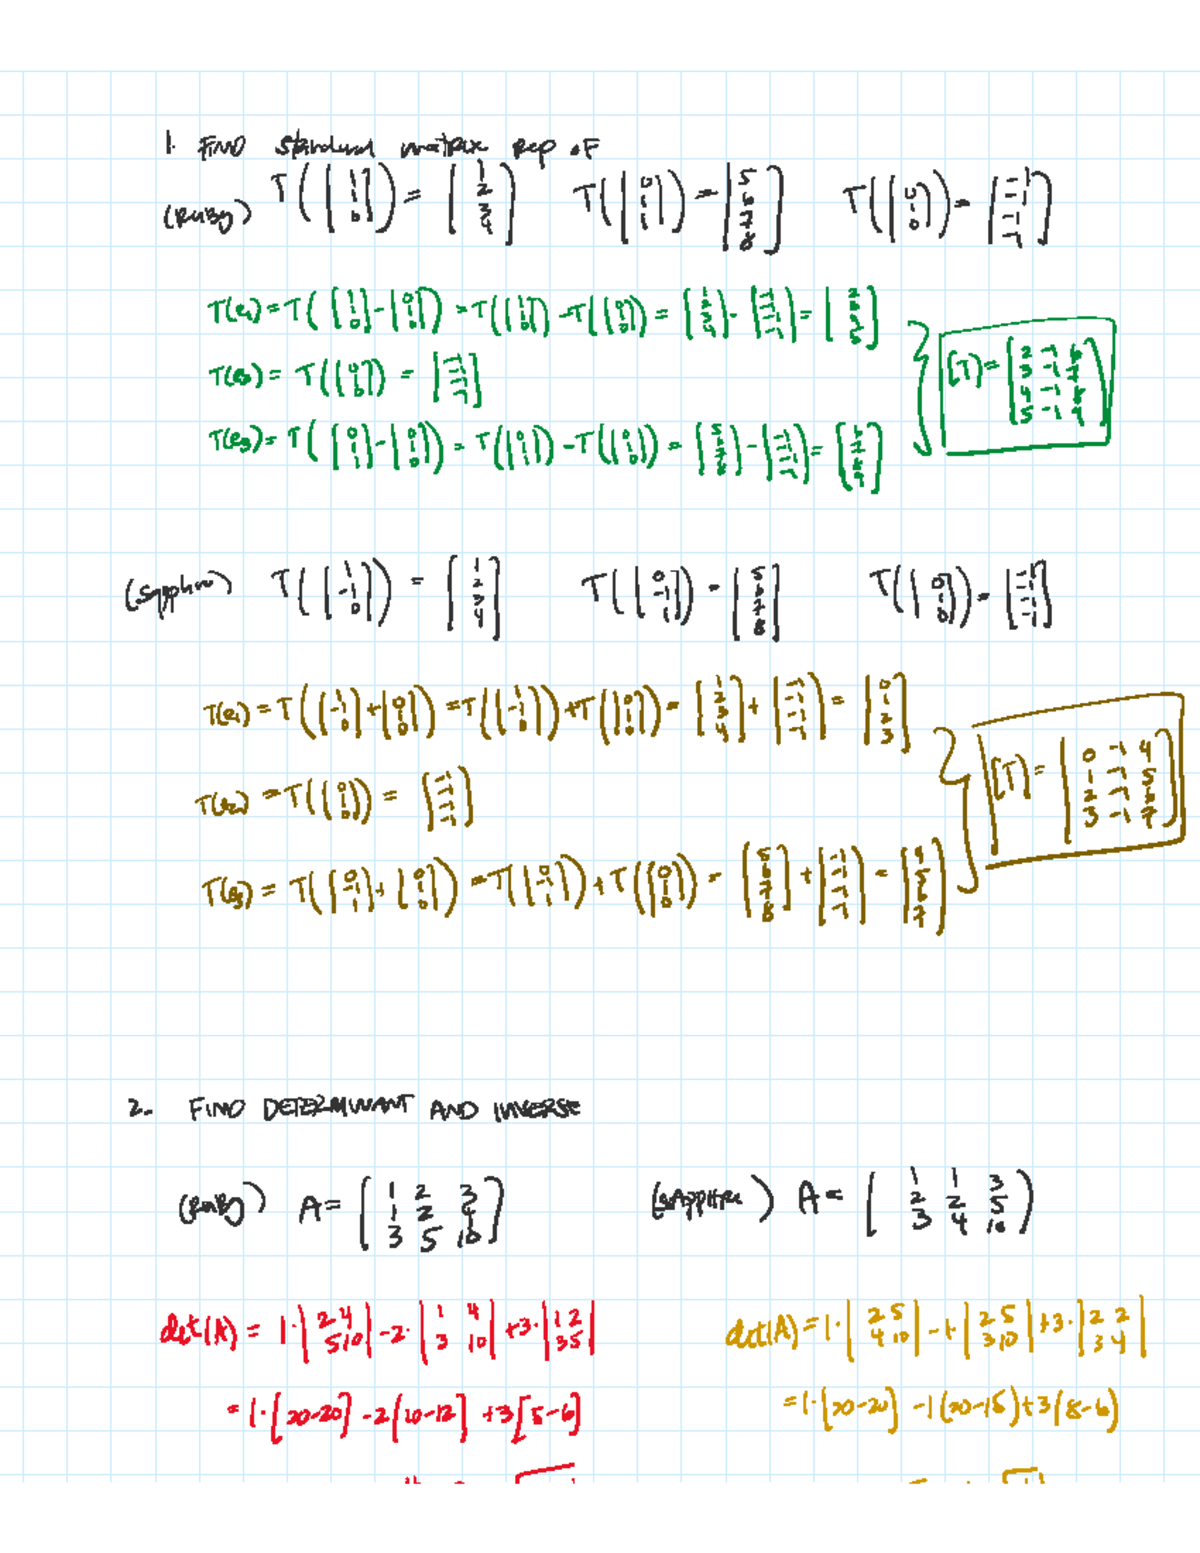 1. FIND standard matrix rep of
(Ruby) T([1 1 0]) = [1 2 3 4] T([0 1 1]) = [5 6 7 8] T([0 1 0]) = [-1 -1 -1 -1]
T(e1) = T([1 1 0] - [0 1 0]) = T([1 1 0]) - T([0 1 0]) = [1 2 3 4] - [-1 -1 -1 -1] = [2 3 4 5]
T(e2) = T([0 1 0]) = [-1 -1 -1 -1]
T(e3) = T([0 1 1] - [0 1 0]) = T([0 1 1]) - T([0 1 0]) = [5 6 7 8] - [-1 -1 -1 -1] = [6 7 8 9]
[T] = [2 -1 6
3 -1 7
4 -1 8
5 -1 9]
(Sapphire) T([1 -1 0]) = [1 2 3 4] T([0 -1 1]) = [5 6 7 8] T([0 1 0]) = [-1 -1 -1 -1]
T(e1) = T([1 -1 0] + [0 1 0]) = T([1 -1 0]) + T([0 1 0]) = [1 2 3 4] + [-1 -1 -1 -1] = [0 1 2 3]
T(e2) = T([0 1 0]) = [-1 -1 -1 -1]
T(e3) = T([0 -1 1] + [0 1 0]) = T([0 -1 1]) + T([0 1 0]) = [5 6 7 8] + [-1 -1 -1 -1] = [4 5 6 7]
[T] = [0 -1 4
1 -1 5
2 -1 6
3 -1 7]
2. FIND DETERMINANT AND INVERSE
(Ruby) A = [1 2 3
1 2 4
3 5 10]
(SAPPHIRE) A = [1 1 3
2 2 5
3 4 10]
det(A) = 1·|2 4 5 10| - 2·|1 4 3 10| + 3·|1 2 3 5|
= 1·[20-20] - 2[10-12] + 3[5-6]
det(A) = 1·|2 5 4 10| - 1·|2 5 3 10| + 3·|2 2 3 4|
= 1·[20-20] - 1(20-15) + 3(8-6)